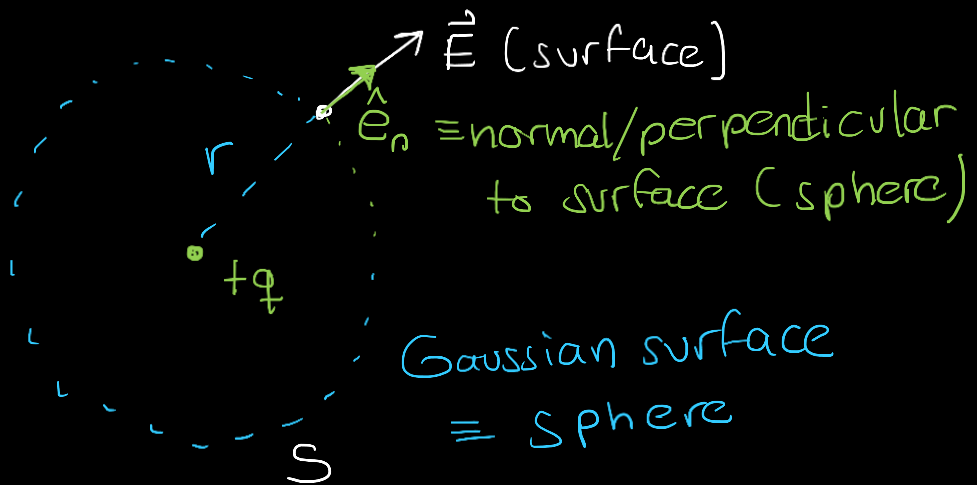 E⃗ (surface)
ê_n ≡ normal/perpendicular
to surface (sphere)
r
+q
Gaussian surface
≡ sphere
S